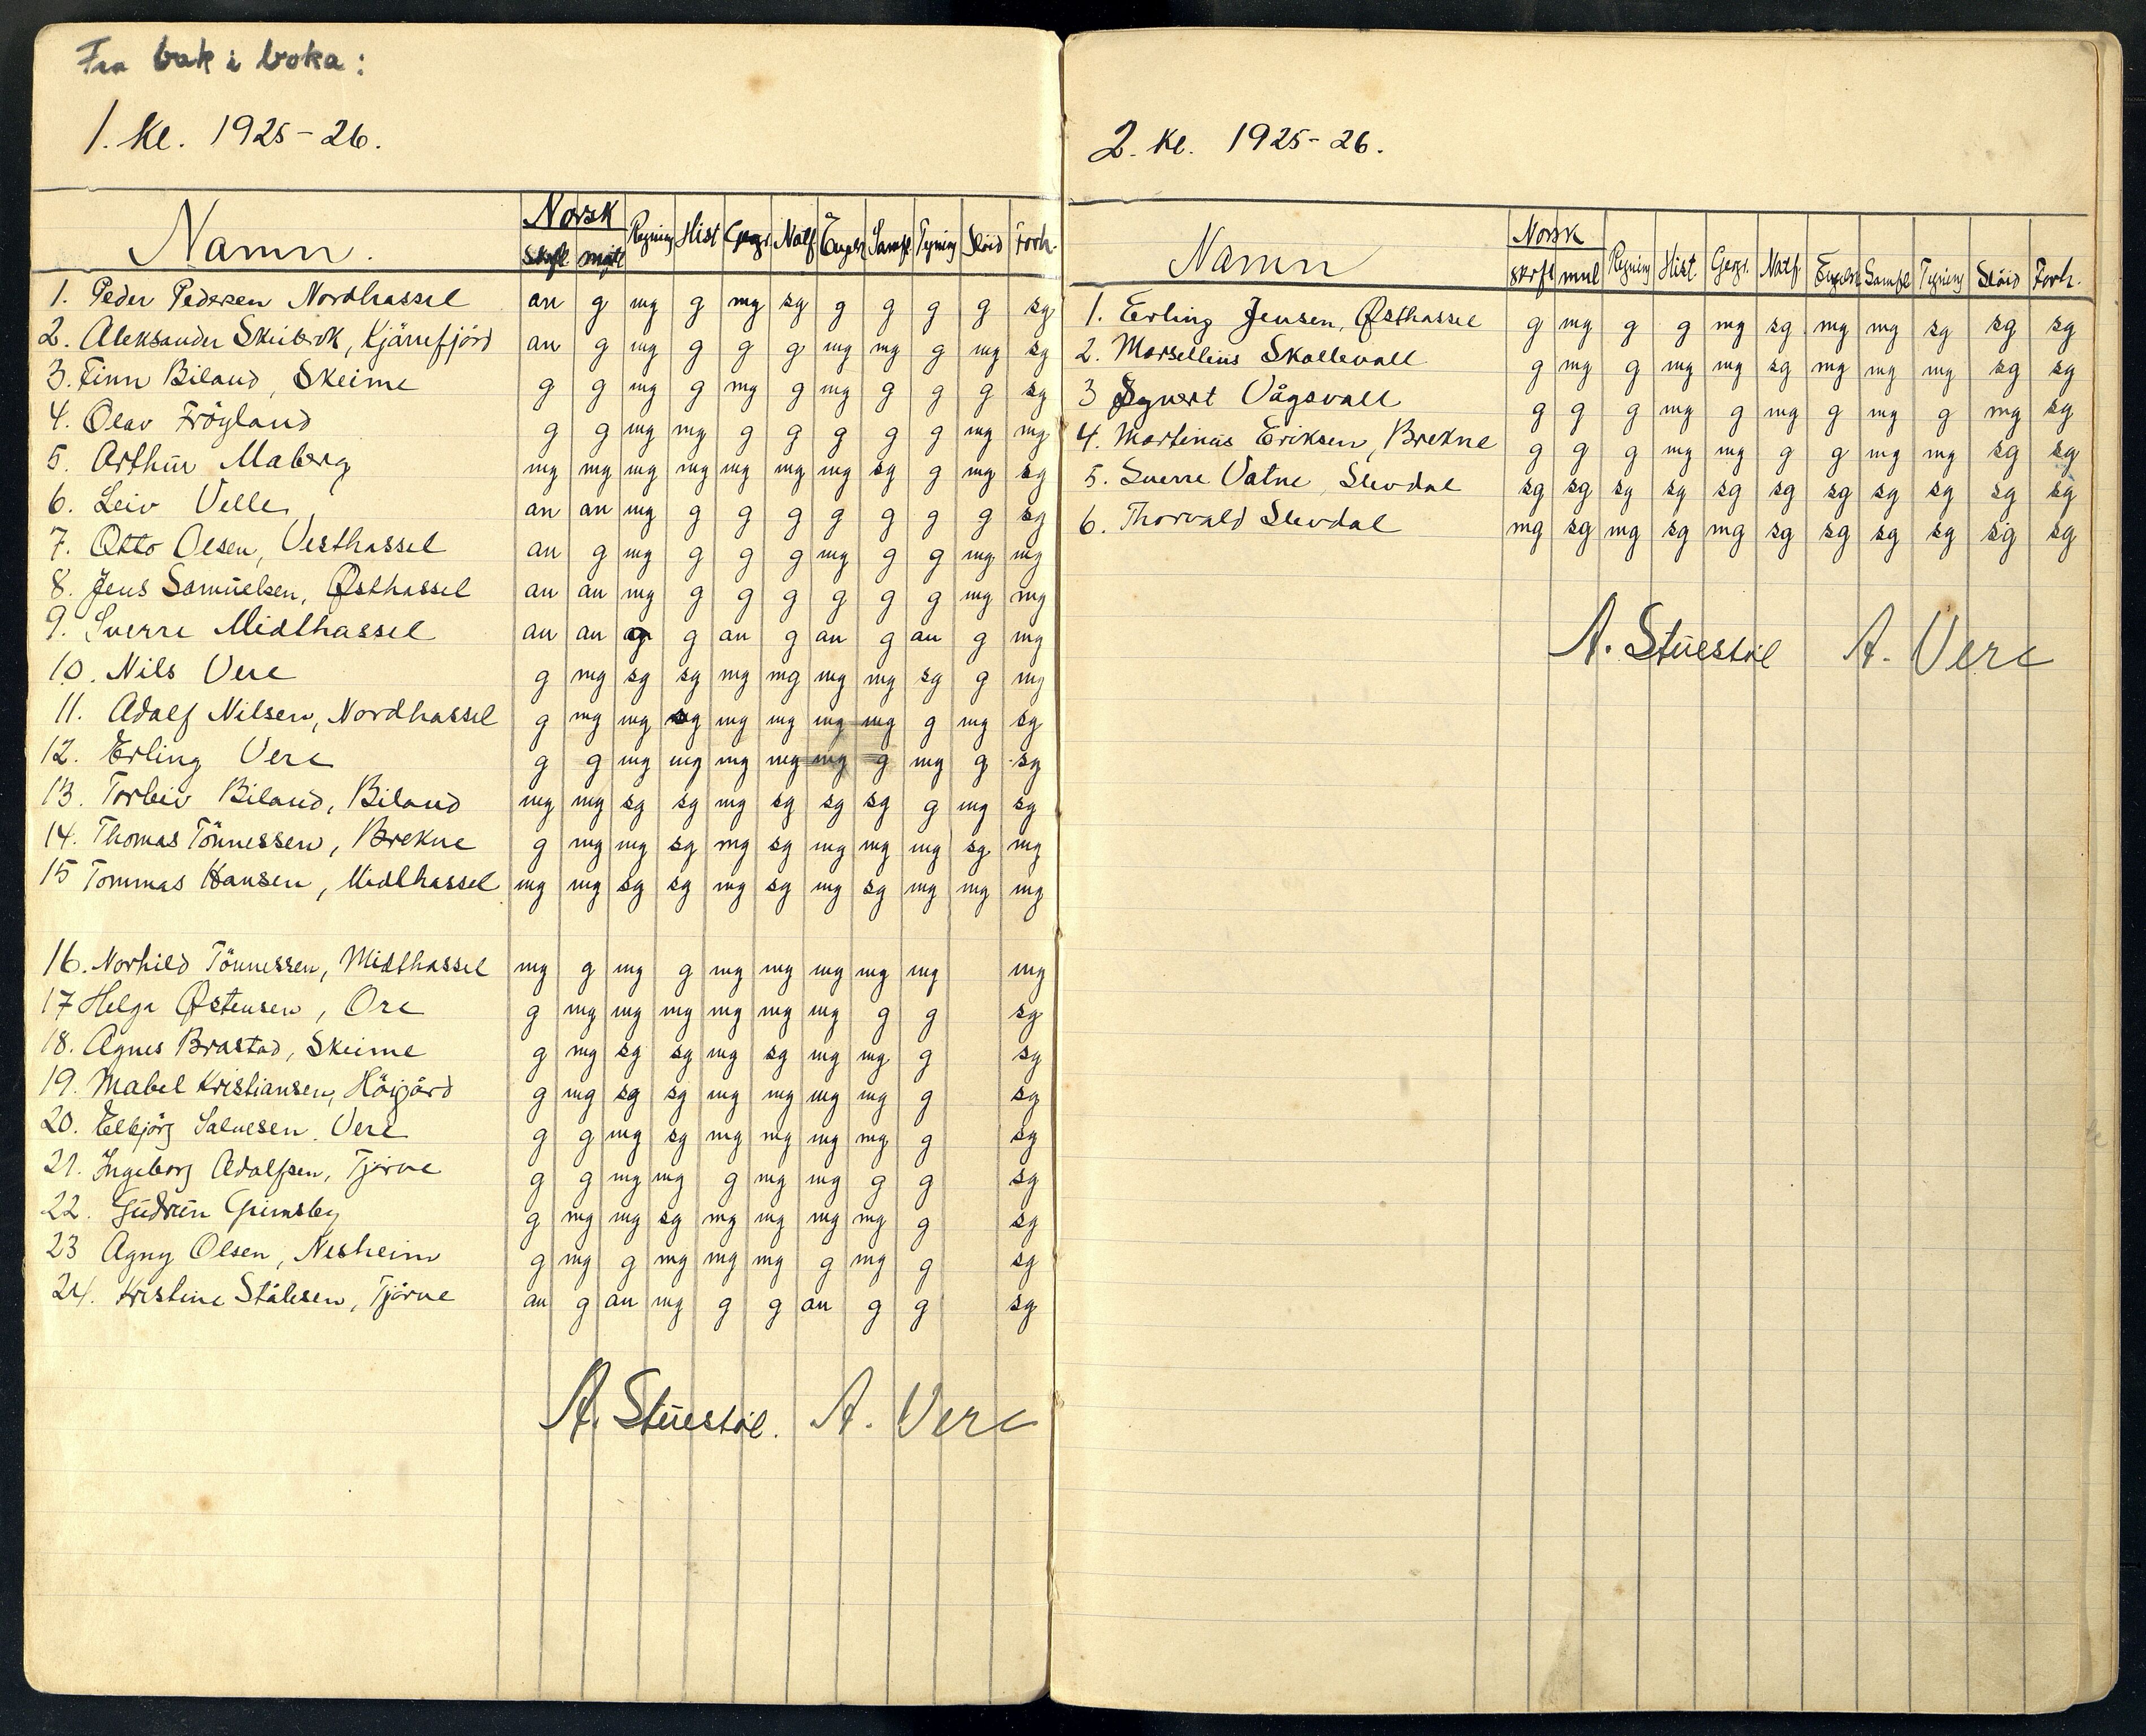 Fra bak i boka:
1. kl. 1925-26.
Namn. Norsk Regning Hist Geogr. Natf Engelsk Samfl Tegning Slöid Forh.
Skrftl mütl
1. Peder Pedersen Nordhassel an g mg g mg sg g g g g sg
2. Aleksander Skeibrok, Kjärrefjörd an g mg g g g mg mg g mg sg
3. Finn Biland, Skeime g g mg g mg g mg g g g sg
4. Olav Fröyland g g mg mg g g g g g mg mg
5. Arthur Maberg mg mg mg mg mg mg mg sg g mg sg
6. Leiv Velle an an mg g g g g g g g sg
7. Otto Olsen, Vesthassel an g mg g g g mg g g mg mg
8. Jens Samuelsen, Østhassel an an mg g g g g g g mg mg
9. Sverre Midthassel an an g g an g an g an g mg
10. Nils Vere g mg sg sg mg mg mg mg sg g mg
11. Adolf Nilsen, Nordhassel g mg mg sg mg mg mg mg g mg sg
12. Erling Vere g g mg mg mg mg mg g mg g sg
13. Torleiv Biland, Biland mg mg sg sg mg sg sg sg g mg sg
14. Thomas Tönnessen, Brekne g mg mg sg mg sg mg mg mg sg mg
15 Tommas Hansen, Midthassel mg mg sg sg mg sg mg sg mg mg mg
16. Norhild Tönnessen, Midthassel mg g mg g mg mg mg mg mg mg
17 Helga Østensen, Ore g mg mg mg mg mg mg g g sg
18. Agnes Brastad, Skeime g mg sg sg mg sg mg mg g sg
19. Mabel Kristiansen, Höigård g mg sg sg mg mg mg mg g sg
20. Elbjörg Salvesen, Vere g g mg sg mg mg mg mg g sg
21. Ingeborg Adolfsen, Tjörve g g mg mg g mg mg g g sg
22. Gudrun Grimsby g mg mg sg mg mg mg mg g sg
23 Agny Olsen, Nesheim g mg g mg mg mg g mg g sg
24. Kristine Stålesen, Tjörve an g an mg g g an g g sg
A. Stuestöl. A. Vere
2. kl. 1925-26.
Namn Norsk Regning Hist. Geogr. Natf. Engelsk Samfl Tegning Slöid Forh.
skrftl mnl
1. Erling Jensen, Østhassel g mg g g mg sg mg mg sg sg sg
2. Marsellius Skollevoll g mg g mg mg sg mg mg mg sg sg
3 Sygvert Vågsvoll g g g mg g mg g mg g mg sg
4. Martinius Eriksen, Brekne g g g mg mg g g mg mg sg sg
5. Sverre Vatne, Slevdal sg sg sg sg sg sg sg sg sg sg sg
6. Thorvald Slevdal mg sg mg sg mg sg sg sg sg sg sg
A. Stuestöl A. Vere